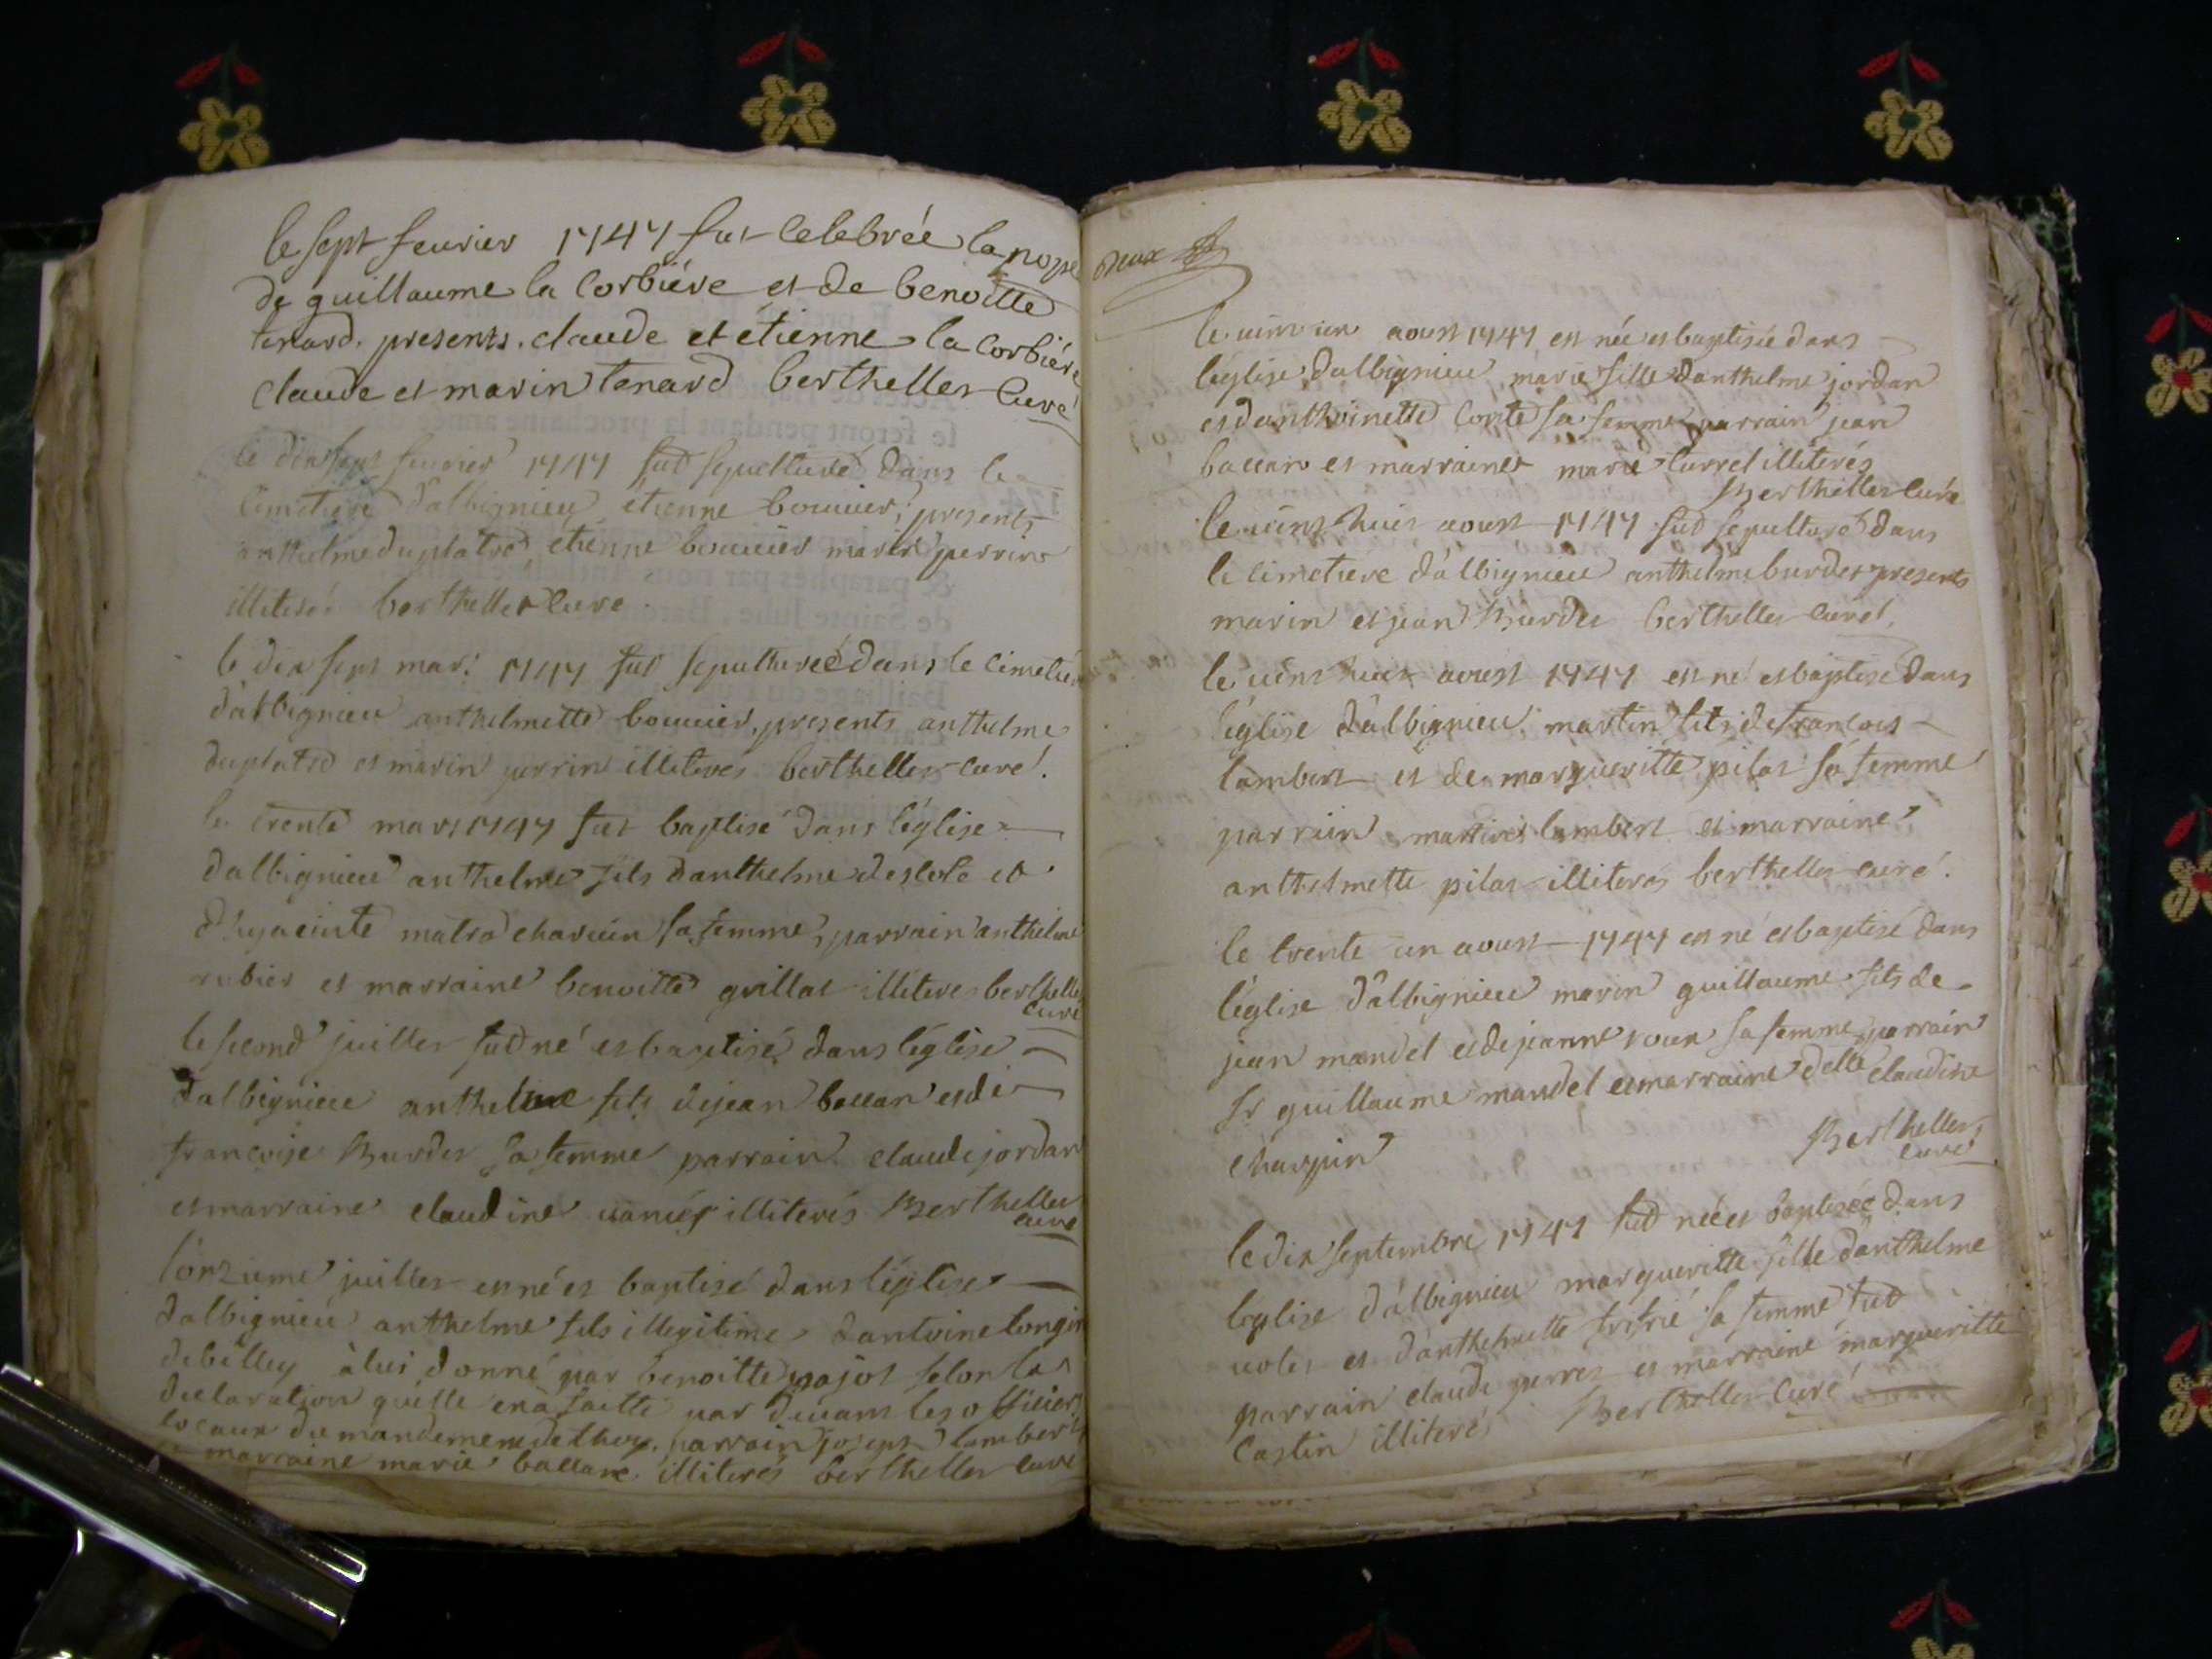 le sept feurier 1747 fut celebrée la nopse
de guillaume la Corbiére et de benoitte
tenard. presents. claude et etienne la Corbiére
claude et marin tenard berthellet Curé
le dix sept feurier 1747 fut sepulturé dans le
Cimetiere d'albignieu étienne bouuier, presents
anthelme duplatre etienne bouuier marin perrin
illiterés berthellet Cure.
le dix sept mars 1747 fut sepulturée dans le Cimetiere
d'albignieu anthelmette bouuier, presents anthelme
duplatre et marin perrin illiteres berthellet curé.
le trente mars 1747 fut baptisé dans l'église
dalbignieu anthelme fils danthelme descote et
d'hyacinte matra charuin sa femme, parrain anthelme
rubier et marraine benoitte guillat illiteres berthellet
curé
le second juillet fut né et baptisé dans l'église
dalbignieu anthelme fils de jean baccan et de
francoise Burdet sa femme parrain claude jordan
et marraine claudine illiterés Berthellet
curé
l'onzieme juillet est né et baptisé dans l'église
dalbignieu anthelme fils illegitime dantoine longin
de belley à lui donné par benoitte pajot selon la
declaration qu'elle en a faitte par deuant les officiers
locaux du mandement de thoys. parrain joseph lambert
et marraine marie baccan illiterés berthellet curé
deux
le uint un aoust 1747 est née et baptisée dans
l'église d'albignieu marie fille danthelme jordan
et danthoinette Conte sa femme parrain jean
baccan et marraine marie Curret illiterés
Berthellet Curé
le uint huit aoust 1747 fut sepulturé dans
le cimetiére d'albignieu anthelme burdet presents
marin et jean Burdet berthellet Curé.
le uint huit aoust 1747 est né et baptisé dans
l'église d'albignieu martin fils de francois
lambert et de margueritte pilat sa femme
parrain martin lambert et marraine
anthelmette pilat illiterés berthellet curé.
le trente un aoust 1747 est né et baptisé dans
l'église d'albignieu marin guillaume fils de
jean mandel et de jeanne roux sa femme parrain
sr guillaume mandel et marraine delle claudine
charpin Berthellet
curé
le dix septembre 1747 fut née et baptisée dans
leglise d'albignieu margueritte fille danthelme
uolet et d'anthelmette sa femme fut
parrain claude perret et marraine margueritte
Castin illiterés Berthellet Curé